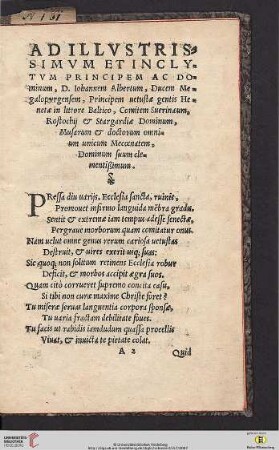 AD ILLVSTRIS-
SIMVM ET INCLY-
TVM PRINCIPEM AC DO-
minum, D. Iohannem Albertum, Ducem Me
galopyrgensem, Principem uetustæ gentis He
netæ in littore Baltico, Comitem Suerinum,
Rostochij & Stargardiæ Dominum,
Musarum & doctorum omni-
um unicum Mecœnatem,
Dominum suum cle
mentissimum.
PRessa diu uarijs, Ecclesia sancta, ruinis,
Promouet infirmo languida mẽbra gradu.
Sentit & extremæ iam tempus adesse senectæ,
Pergraue morborum quam comitatur onus.
Nam uelut omne genus rerum cariosa uetustas
Destruit, & uires exerit usq; suas:
Sic quoq; non solitum retinens Ecclesia robur
Deficit, & morbos accipit ægra suos.
Quam citò corrueret supremo concita casu,
Si tibi non curæ maxime Christe foret?
Tu miseræ seruas languentia corpora sponsæ,
Tu uaria fractam debilitate foues.
Tu facis ut rabidis iamdudum quassa procellis
Viuat, & inuicta te pietate colat.
A 2 Quid